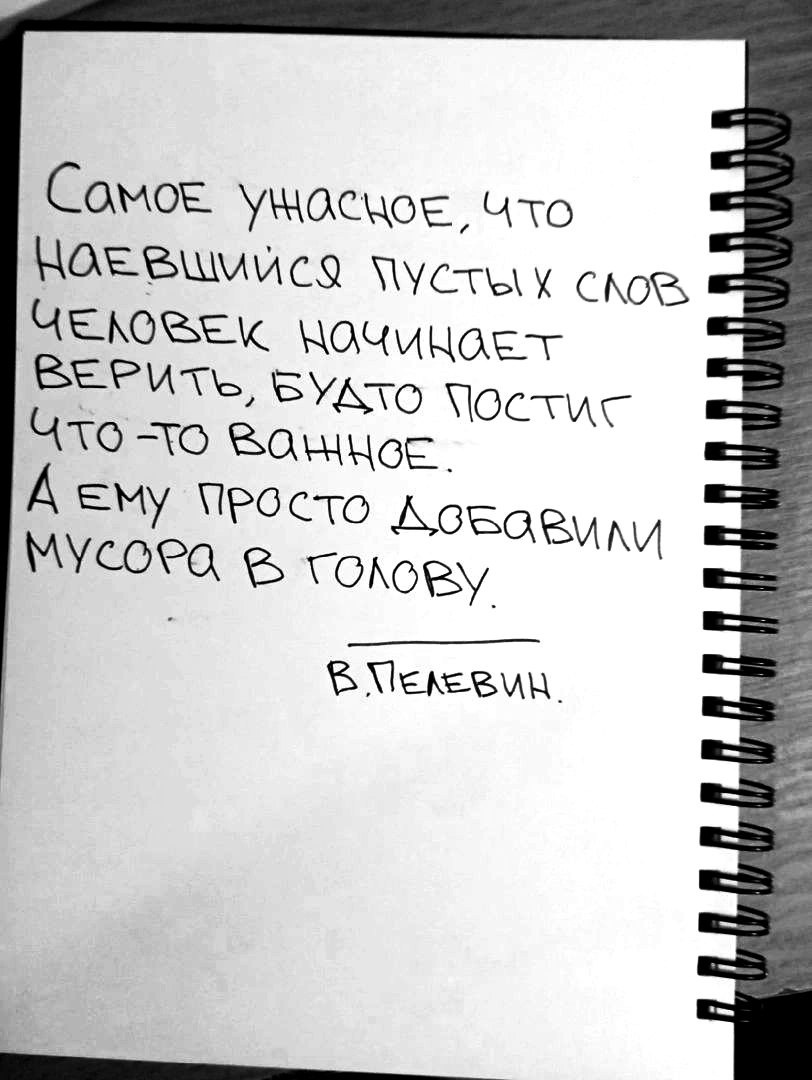 Самое ужасное, что
наевшийся пустых слов
человек начинает
верить, будто постиг
что-то важное.
А ему просто добавили
мусора в голову.
В.Пелевин.